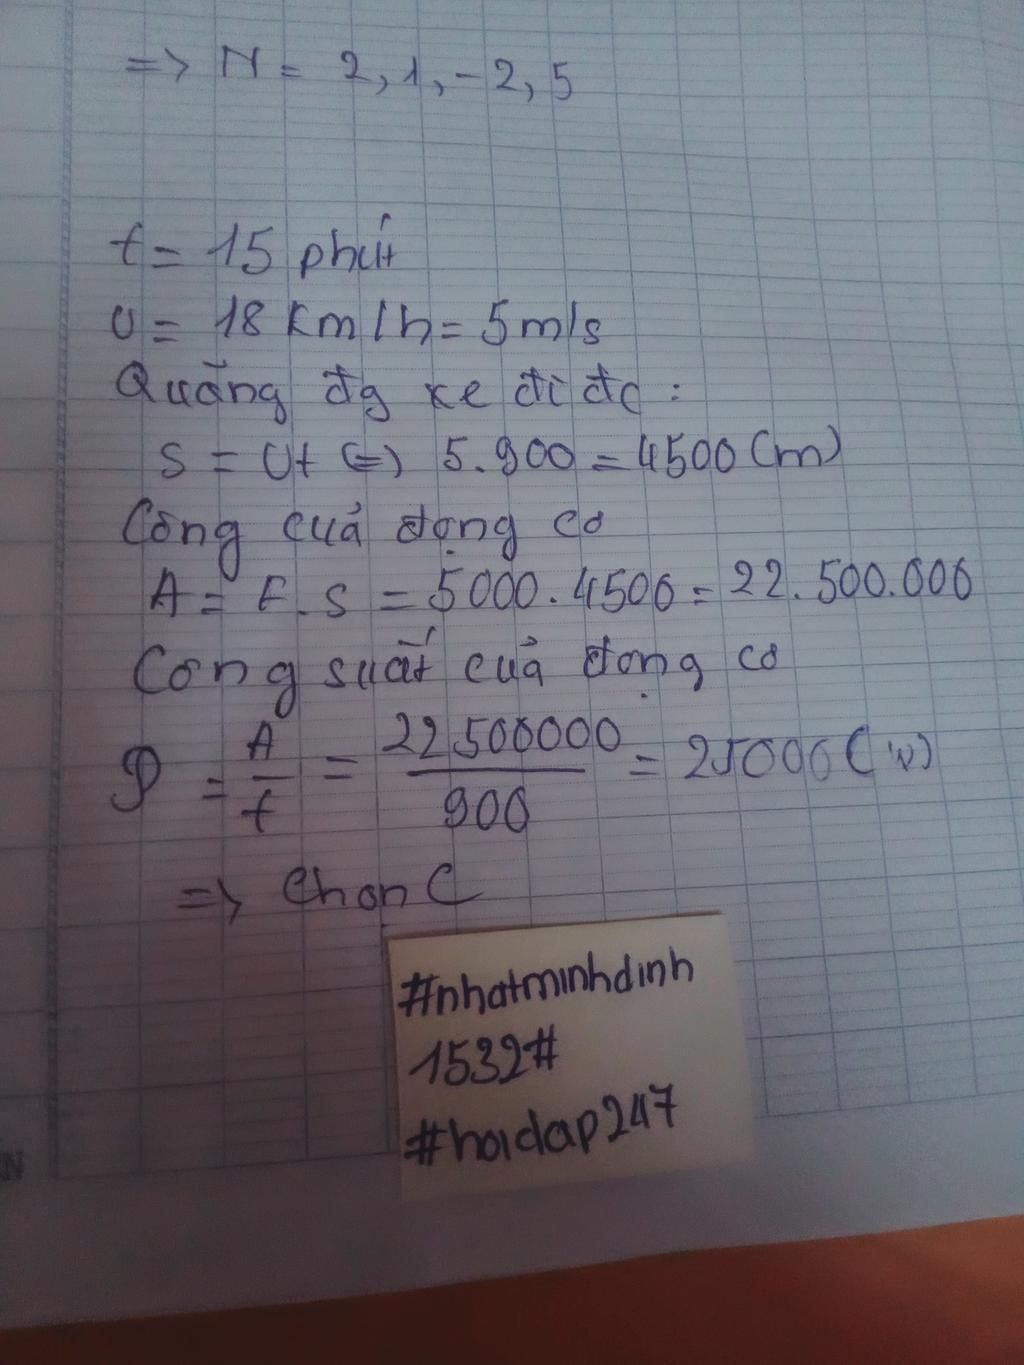 => N = 2, 1, -2, 5
t = 15 phút
v = 18 Km/h = 5m/s
Quãng đg xe đi đc :
S = vt (=) 5.900 = 4500 (m)
Công của động cơ
A = F.s = 5000.4500 = 22.500.000
Công suất của động cơ
P = A/t = 22500000/900 = 25000 (w)
=> Chọn C
#nhatminhdinh
1532#
#hoidap247
N